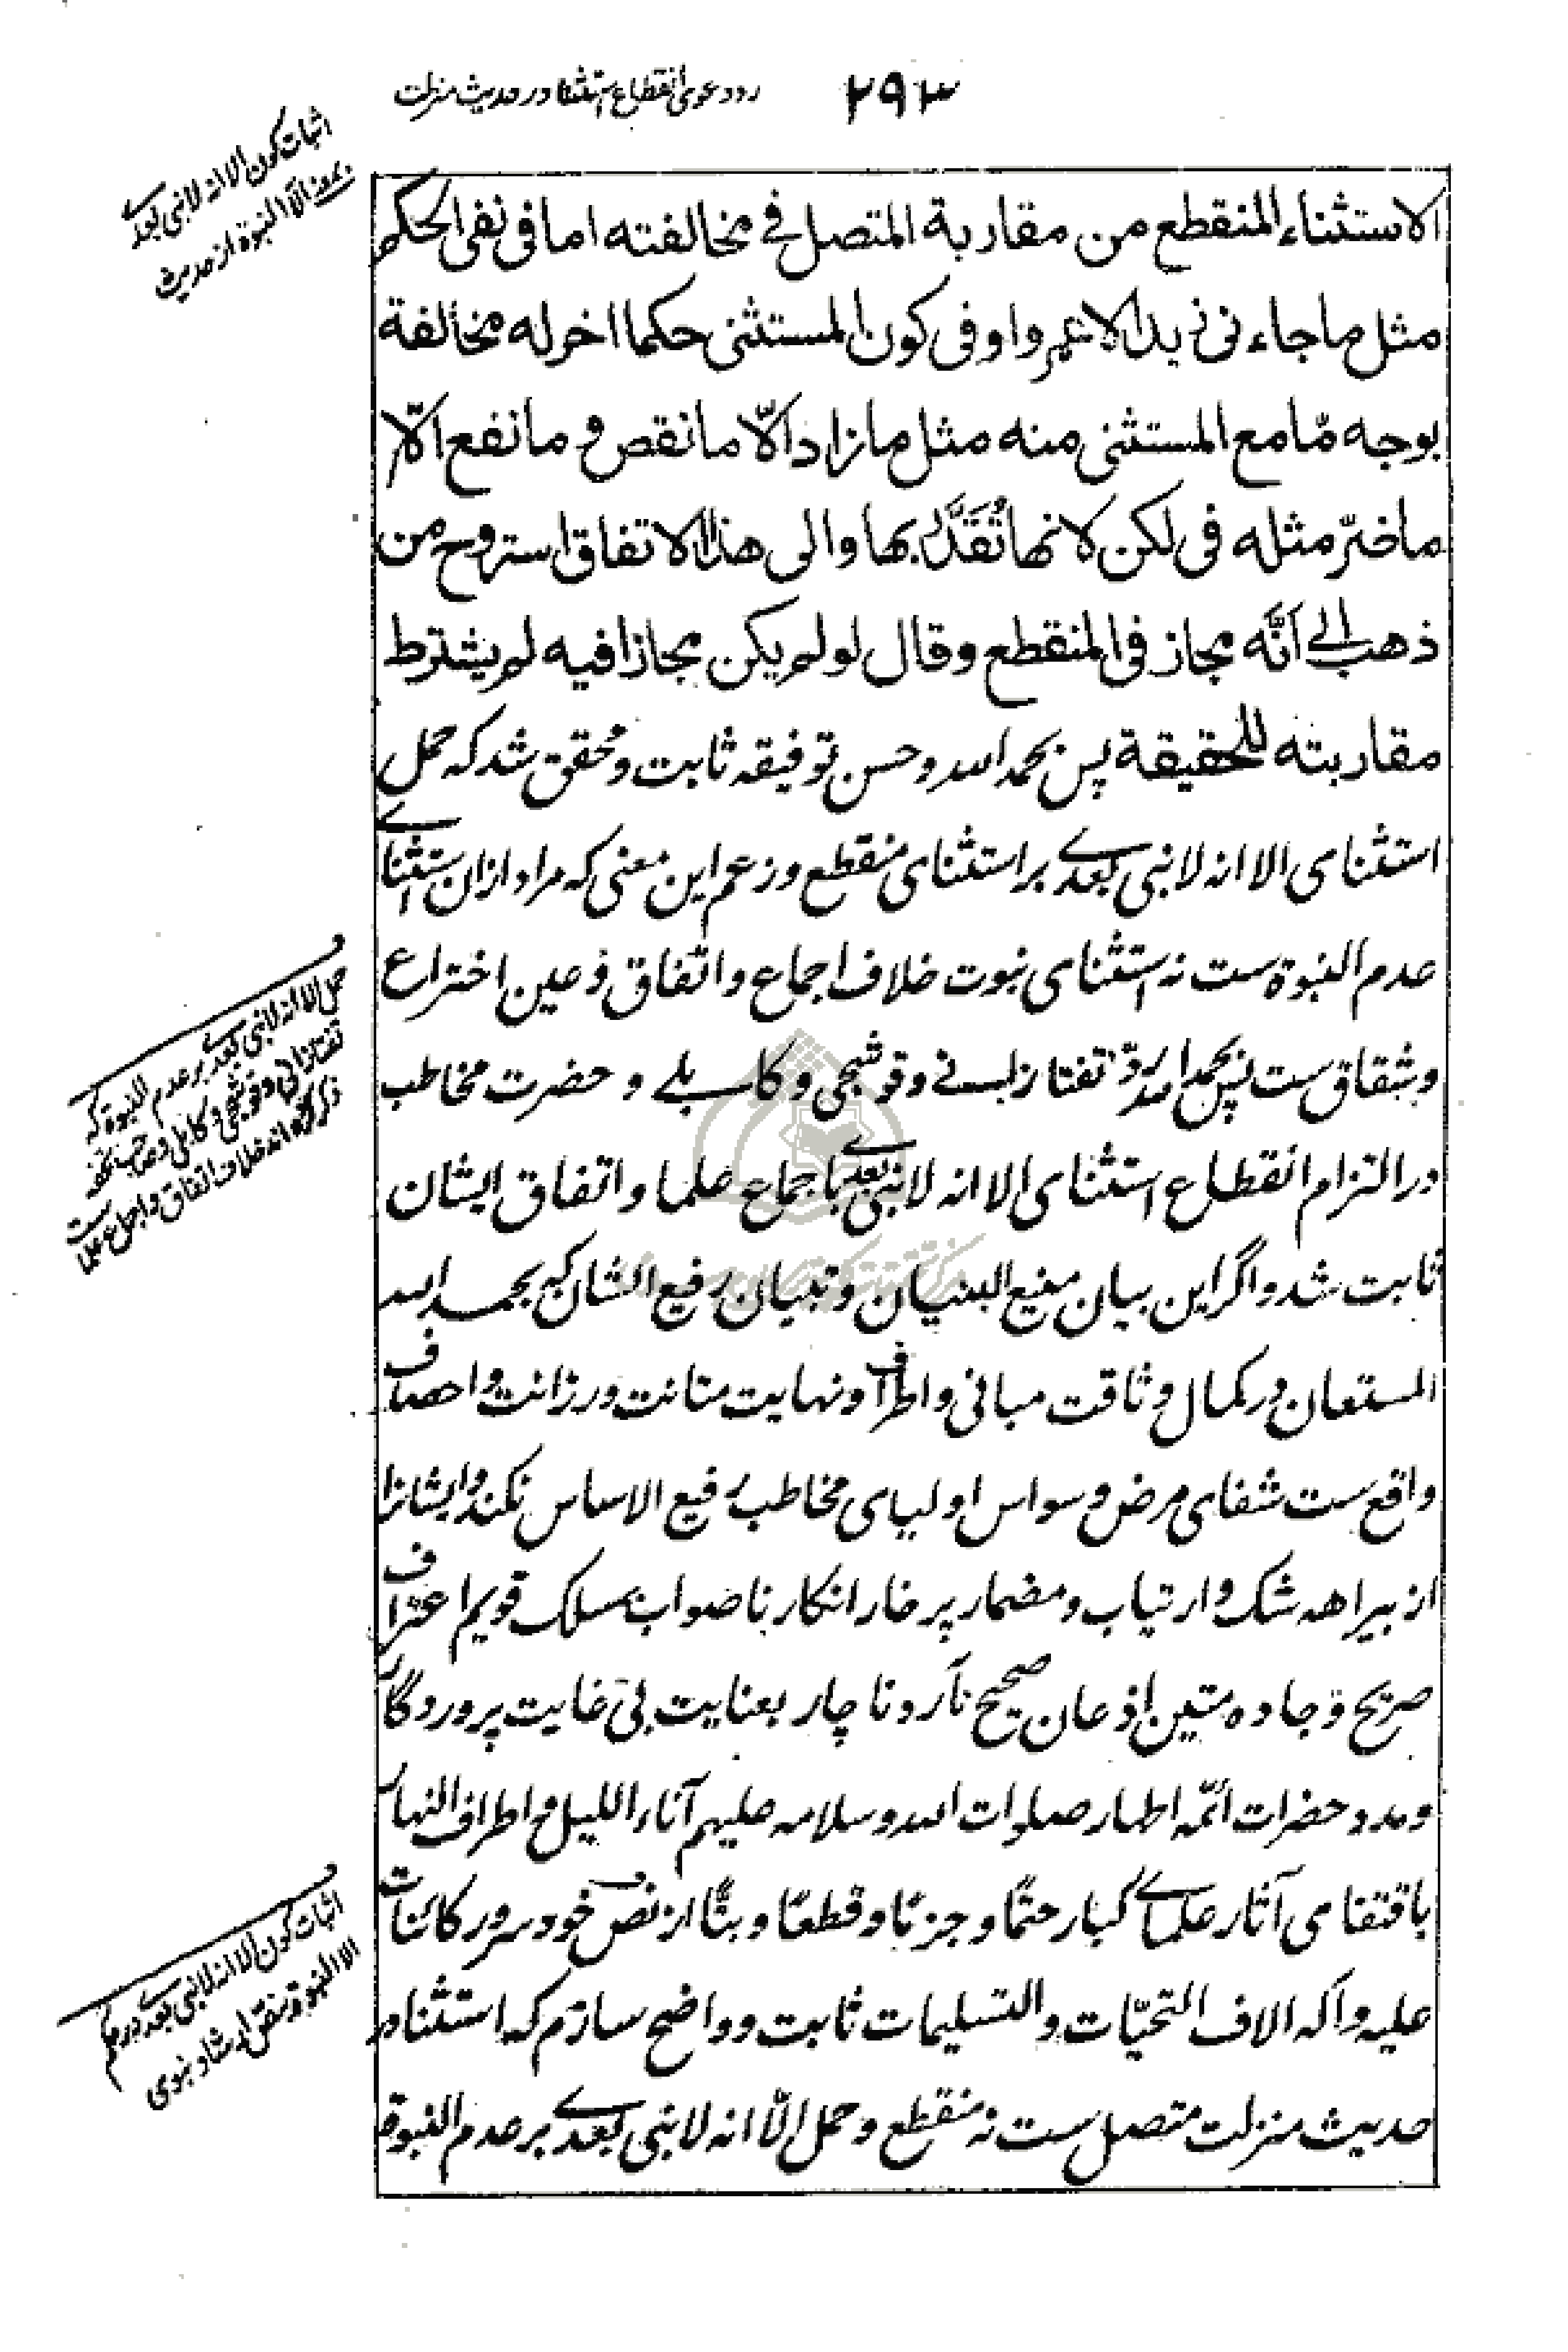 ۲۹۳
رد دعوی انقطاع استثنا در حدیث منزلت
اثبات کون الا انه لا نبی بعدے
بمنزلة الا النبوة از حدیث
الاستثناء المنقطع من مقاربة المتصل فے مخالفته اما فی نفی الحکم
مثل ما جاءنی زید الا عمروا او فی کون المستثنی حکما اخر له مخالفة
بوجه مّا مع المستثنی منه مثل ما زاد الّا ما نقص و ما نفع الّا
ما ضرّ مثله فی لکن لانها تُقَدَّر بها والی هذا الاتفاق استروح من
ذهب الے اَنَّه مجاز فی المنقطع وقال لو لم یکن مجازا فیه لم یشترط
مقاربته للحقیقة پس بحمد الله و حسن توفیقه ثابت و محقق شد که حمل
استثنای الا انه لا نبی بعدے بر استثنای منقطع و زعم این معنی که مراد ازان استثنای
عدم النبوة ست نه استثنای نبوت خلاف اجماع و اتفاق و عین اختراع
و شقاق ست پس بحمد الله ردّ تفتازانے و قوشجی و کابلے و حضرت مخاطب
در التزام انقطاع استثنای الا انه لا نبی بعدے باجماع علما و اتفاق ایشان
ثابت شد و اگر این بیان منیع البنیان و تبیان رفیع الشان که بحمد الله
المستعان در کمال وثاقت مبانی و اطراف و نهایت متانت و رزانت و احصاف
واقع ست شفای مرض وسواس اولیای مخاطب رفیع الاساس نکند و ایشانرا
از بیراهه شک و ارتیاب و مضمار پر خار انکار ناصواب بمسلک قویم اعتراف
صریح و جاده متین اذعان صحیح نآرد ناچار بعنایت بی غایت پروردگار
و مدد حضرات ائمّه اطهار صلوات الله و سلامه علیهم آناء اللیل و اطراف النهار
باقتفای آثار علماے کبار حتمًا و جزمًا و قطعًا و بتًّا از نص خود سرور کائنات
علیه و آله الاف التحیّات و التسلیمات ثابت و واضح سازم که استثنا در
حدیث منزلت متصل ست نه منقطع و حمل الّا انه لا نبی بعدے بر عدم النبوة
حمل الا انه لا نبی بعدے بر عدم النبوة که
تفتازانی و قوشجی و کابلی و صاحب تحفه
ذکر کرده اند خلاف اتفاق و اجماع علماست
اثبات کون الا انه لا نبی بعدے در حکم
الا النبوة بنقل ارشاد نبوی